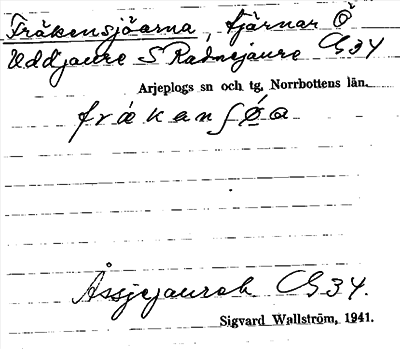 Fräkensjöarna, tjärnar Ö
Uddjaure S Radnejaure G34
Arjeplogs sn och tg, Norrbottens län.
frækanʃø̱a
Åssjejaurek G34.
Sigvard Wallström, 1941.